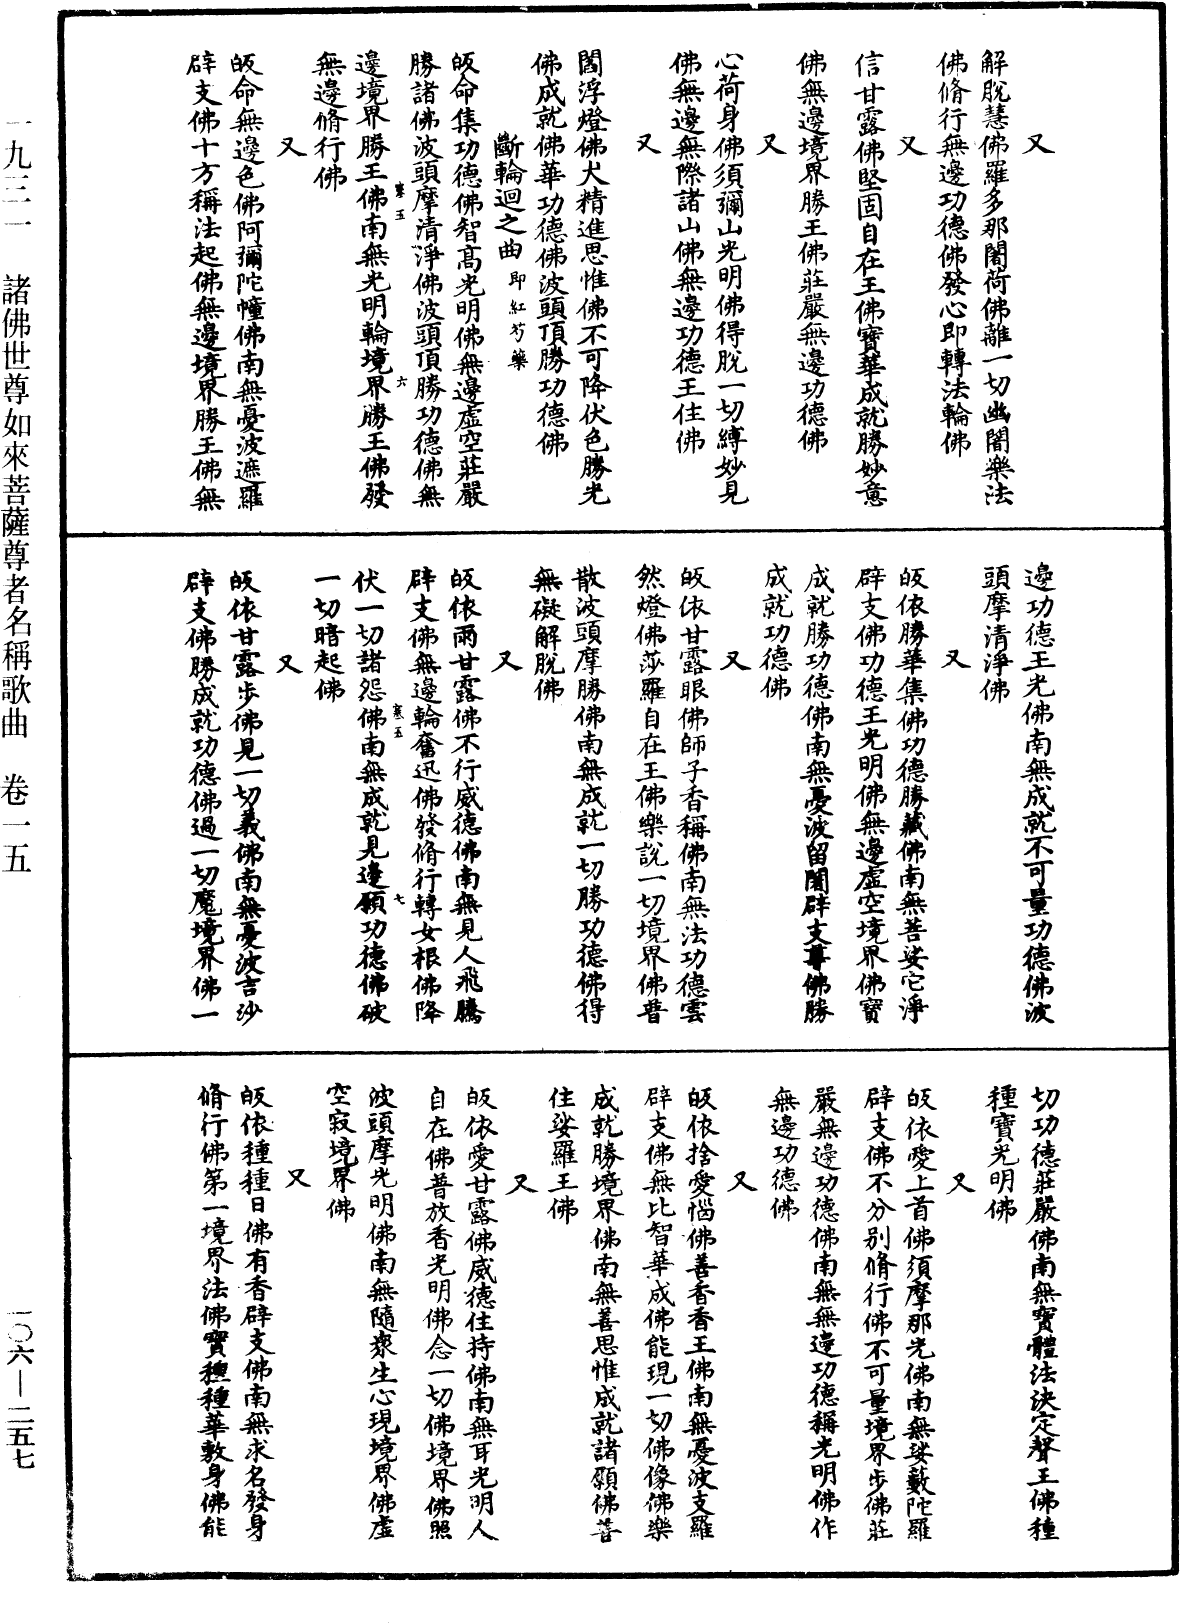 又
解脫慧佛羅多那闍荷佛離一切幽闇樂法
佛脩行無邊功德佛發心即轉法輪佛
又
信甘露佛堅固自在王佛寶華成就勝妙意
佛無邊境界勝王佛莊嚴無邊功德佛
又
心荷身佛須彌山光明佛得脫一切縛妙見
佛無邊無際諸山佛無邊功德王住佛
又
閻浮燈佛大精進思惟佛不可降伏色勝光
佛成就佛華功德佛波頭頂勝功德佛
斷輪迴之曲 即紅芍藥
皈命集功德佛智髙光明佛無邊虛空莊嚴
勝諸佛波頭摩清淨佛波頭頂勝功德佛無
寒五 六
邊境界勝王佛南無光明輪境界勝王佛發
無邊脩行佛
又
皈命無邊色佛阿彌陀幢佛南無憂波遮羅
辟支佛十方稱法起佛無邊境界勝王佛無
邊功德王光佛南無成就不可量功德佛波
頭摩清淨佛
又
皈依勝華集佛功德勝藏佛南無菩娑它淨
辟支佛功德王光明佛無邊虛空境界佛寶
成就勝功德佛南無憂波留闍辟支尊佛勝
成就功德佛
又
皈依甘露眼佛師子香稱佛南無法功德雲
然燈佛莎羅自在王佛樂說一切境界佛普
散波頭摩勝佛南無成就一切勝功德佛得
無礙解脫佛
又
皈依雨甘露佛不行威德佛南無見人飛騰
辟支佛無邊輪奮迅佛發脩行轉女根佛降
寒五 七
伏一切諸怨佛南無成就見邊願功德佛破
一切暗起佛
又
皈依甘露步佛見一切義佛南無憂波吉沙
辟支佛勝成就功德佛過一切魔境界佛一
切功德莊嚴佛南無寶體法決定聲王佛種
種寶光明佛
又
皈依愛上首佛須摩那光佛南無娑藪陀羅
辟支佛不分別脩行佛不可量境界步佛莊
嚴無邊功德佛南無無邊功德稱光明佛作
無邊功德佛
又
皈依捨愛惱佛善香香王佛南無憂波支羅
辟支佛無比智華成佛能現一切佛像佛樂
成就勝境界佛南無善思惟成就諸願佛菩
住娑羅王佛
又
皈依愛甘露佛威德住持佛南無耳光明人
自在佛普放香光明佛念一切佛境界佛照
波頭摩光明佛南無隨衆生心現境界佛虛
空寂境界佛
又
皈依種種日佛有香辟支佛南無求名發身
脩行佛第一境界法佛寶種種華敷身佛能
一九三一 諸佛世尊如來菩薩尊者名稱歌曲 卷一五
一〇六—二五七